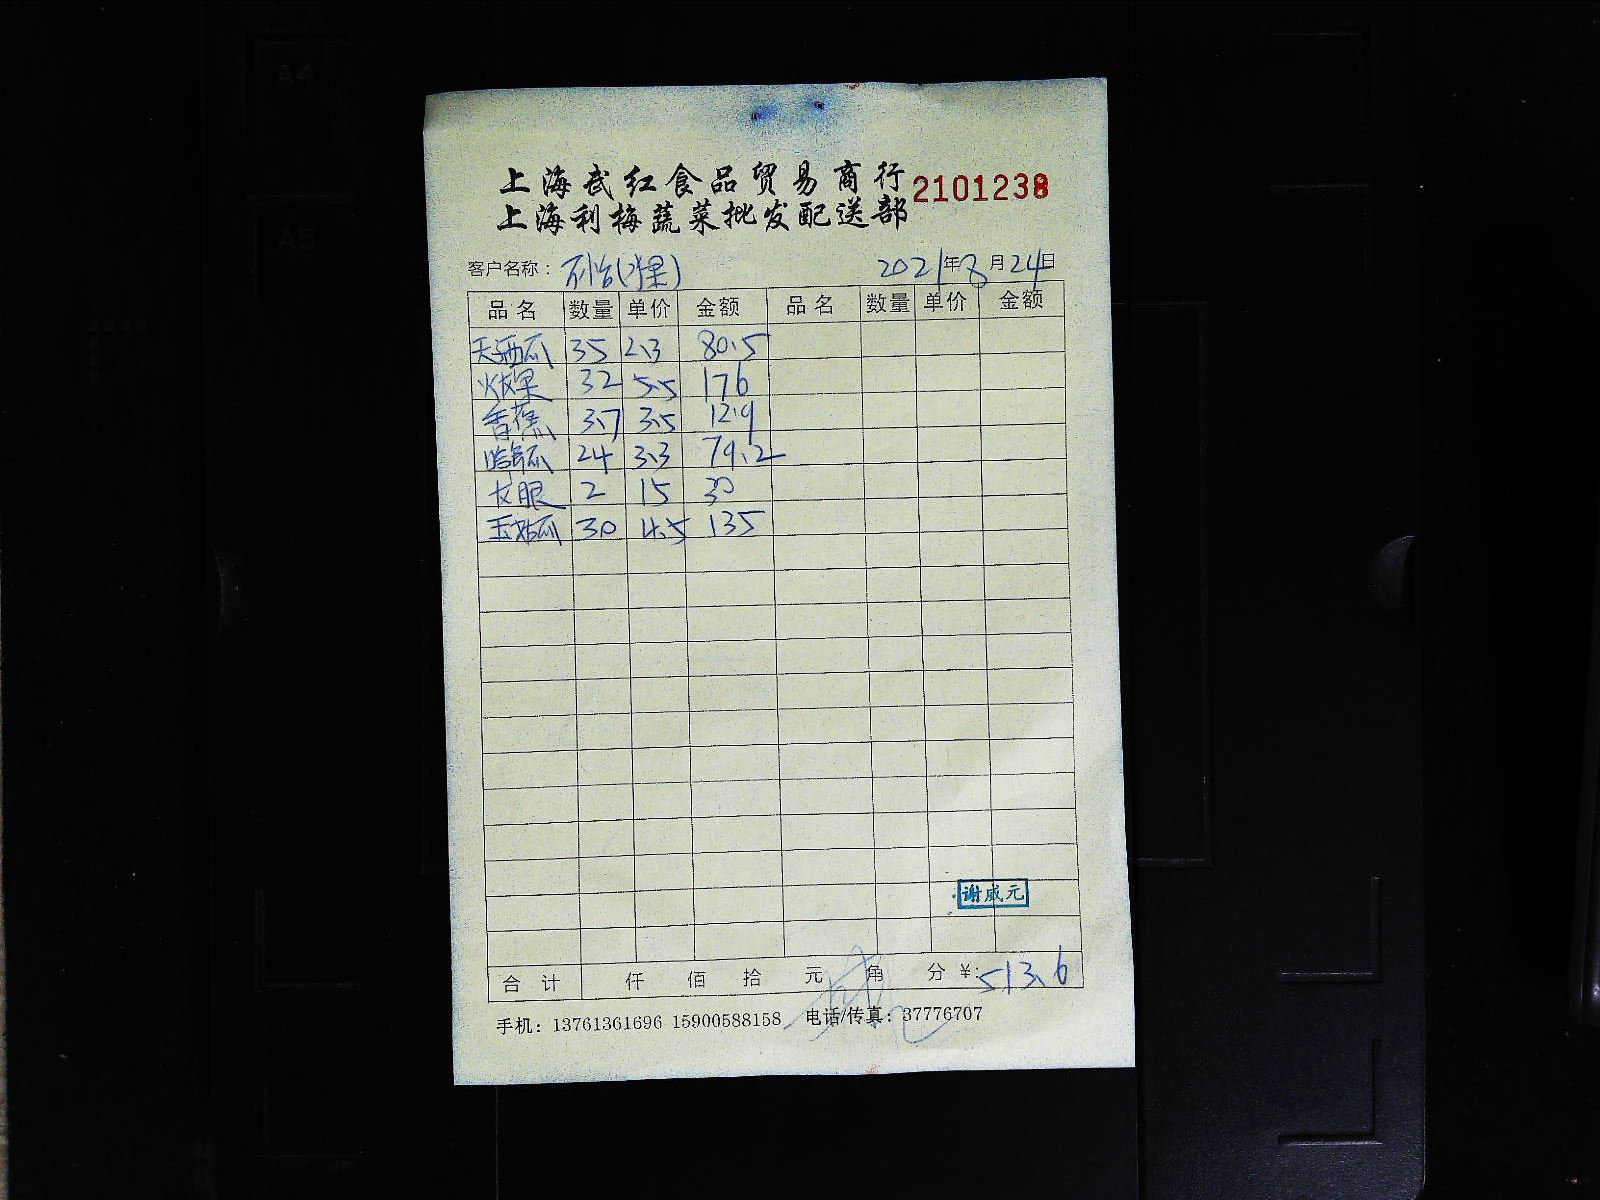 上海武红食品贸易商行 2101238
上海利梅蔬菜批发配送部
客户名称: 2021年8月24日
品名 数量 单价 金额 品名 数量 单价 金额
天西瓜 35 2.3 80.5
火龙果 32 5.5 176
香蕉 3.7 3.5 12.9
哈密瓜 24 3.3 79.2
龙眼 2 15 30
玉菇瓜 30 4.5 135
谢威元
合计 仟 佰 拾 元 角 分 ¥: 513.6
手机: 13761361696 15900588158 电话/传真: 37776707
A4
A5